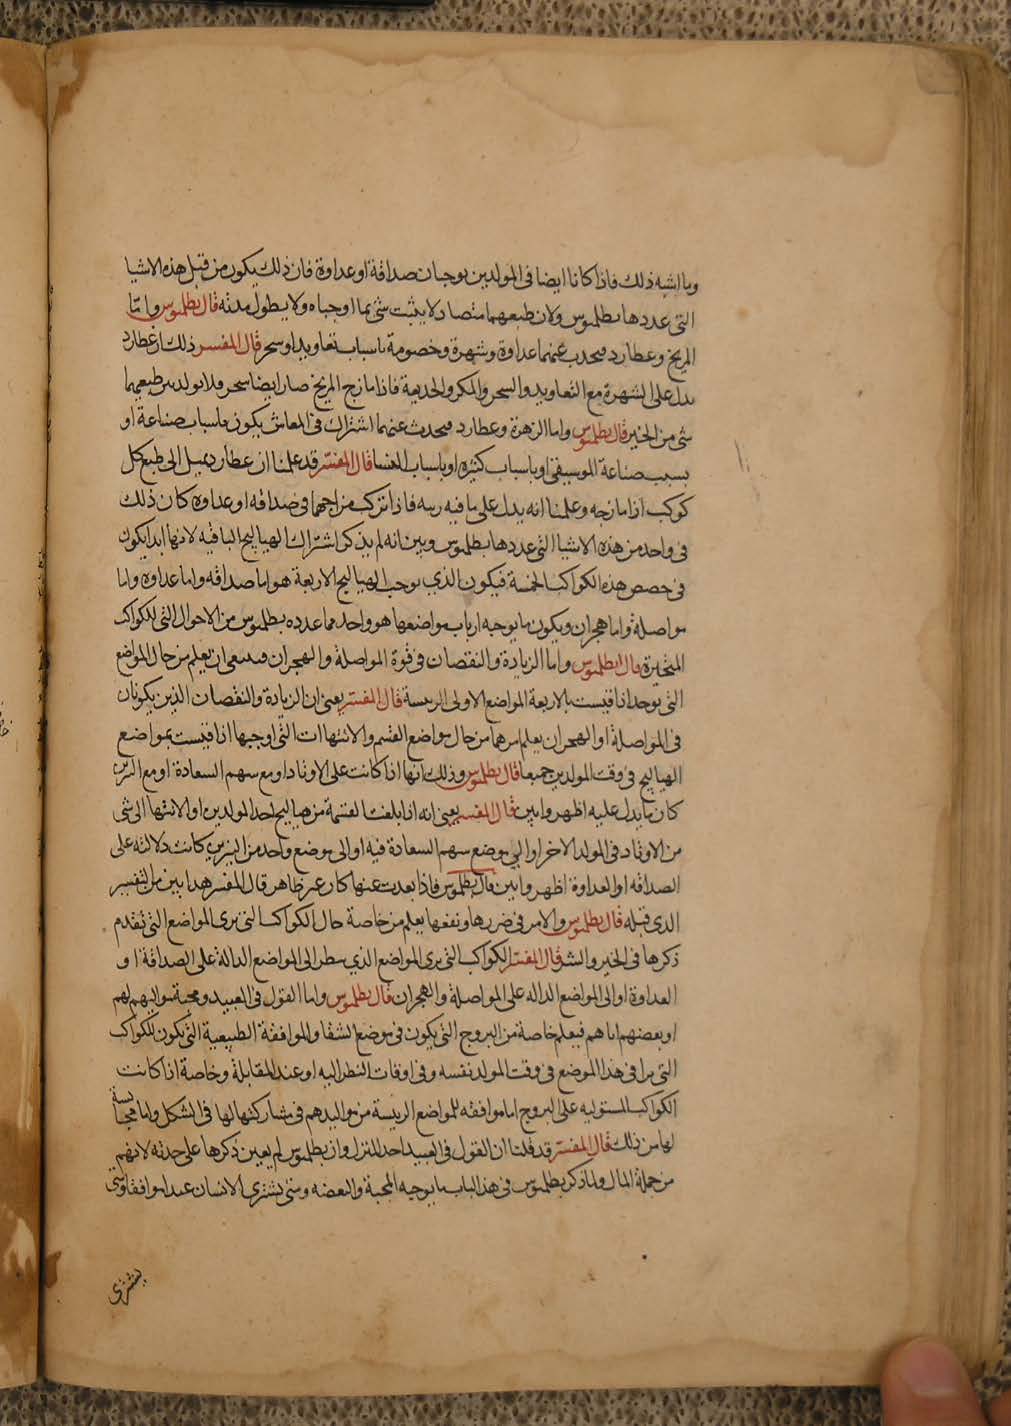 وما اشبه ذلك فاذا كانا ايضا فى المولدين يوجبان صداقة او عداوة فان ذلك يكون من قبل هذه الاشيا
التى عددها بطلميوس ولان طبعهما متضاد لا يثبت شئ مما اوجباه ولا يطول مدته قال بطلميوس واما
المريخ وعطارد فيحدث عنهما عداوة وشهرة وخصومة باسباب تعاويد او سحر قال المفسر ذلك ان عطارد
يدل على الشهرة مع التعاويد والسحر والمكر والخديعة فاذا مازج المريخ صار ايضا سحر فلا يولد من طبعهما
شى من الخير قال بطلميوس واما الزهرة وعطارد فيحدث عنهما اشتراك فى المعاش يكون باسباب صناعة او
بسبب صناعة الموسيقى او باسباب كثيره او باسباب النسا قال المفسر قد علمنا ان عطارد يميل الى طبع كل
كوكب اذا مازجه وعلمنا انه يدل على ما فيه ربه فاذا تركب مزاجهما فى صداقه او عداوه كان ذلك
فى واحد من هذه الاشيا التى عددها بطلميوس وبين انه لم يذكر اشتراك الهياليج الباقيه لانها ابدا يكون
فى حصص هذه الكواكب الخمسة فيكون الذي يوجب الهياليج الاربعة هو اما صداقه واما عداوه واما
مواصلة واما هجران ويكون ما يوجبه ارباب مواضعها هو واحد مما عدده بطلميوس من الاحوال التى للكواكب
المتحيرة قال بطلميوس واما الزيادة والنقصان فى قوة المواصلة والهجران فينبغى ان يعلم من حال المواضع
التى توجد اذا قيست بالاربعة المواضع الاولى الرئيسة قال المفسر يعنى ان الزيادة والنقصات الذين يكونان
فى المواصلة او الهجران يعلم امرهما من حال مواضع القسم والانتهاات التى اوجبها اذا قيست بمواضع
الهياليج فى وقت المولدين جميعا قال بطلميوس وذلك انها اذا كانت على الاوتاد او مع سهم السعادة او مع النيرين
كان ما يدل عليه اظهر وابين قال المفسر يعنى انه اذا بلغت القسمة من هياليج احد المولدين او الانتها الى شى
من الاوتاد فى المولد الاخر او الى موضع سهم السعادة فيه او الى موضع واحد من النيرين كانت دلالته على
الصداقه او العداوة اظهر وابين قال بطلميوس فاذا بعدت عنها كان غير ظاهر قال المفسر هذا بين من التفسير
الذى قبله قال بطلميوس والامر فى ضررها ونفعها يعلم من خاصة حال الكواكب التى ترى المواضع التى تقدم
ذكرها فى الخير والشر قال المفسر الكواكب التى ترى المواضع الذي ينظر الى المواضع الدالة على الصداقة او
العداوة او الى المواضع الداله على المواصلة والهجران قال بطلميوس واما القول فى العبيد ومحبة مواليهم لهم
او بغضهم اياهم فيعلم خاصة من البروج التى يكون فى موضع الشقا والموافقة الطبيعية التى يكون للكواكب
التى ترا فى هذا الموضع فى وقت المولد نفسه وفى اوقات النظر اليه او عند المقابلة وخاصة اذا كانت
الكواكب المستوليه على البروج اما موافقه للمواضع الرئيسة من مواليدهم فى مشاركتها لها فى الشكل واما مجانسة
لها من ذلك قال المفسر قد قلنا ان القول فى العبيد احد المنزل وان بطلميوس لم يعين ذكرها على حدته لانهم
من جملة المال ولما ذكر بطلميوس فى هذا الباب ما يوجبه المحبة والبغضه ومتى يشترى الانسان عبدا موافقا ومتى
يشترى